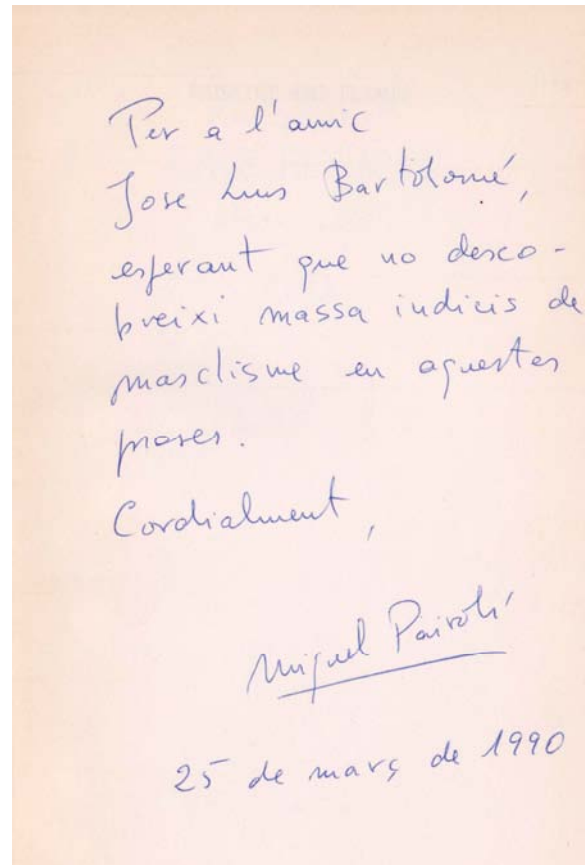 Per a l'amic
Jose Luis Bartolomé,
esperant que no desco-
breixi massa indicis de
masclisme en aquestes
proses.
Cordialment,
Miquel Pairolí
25 de març de 1990